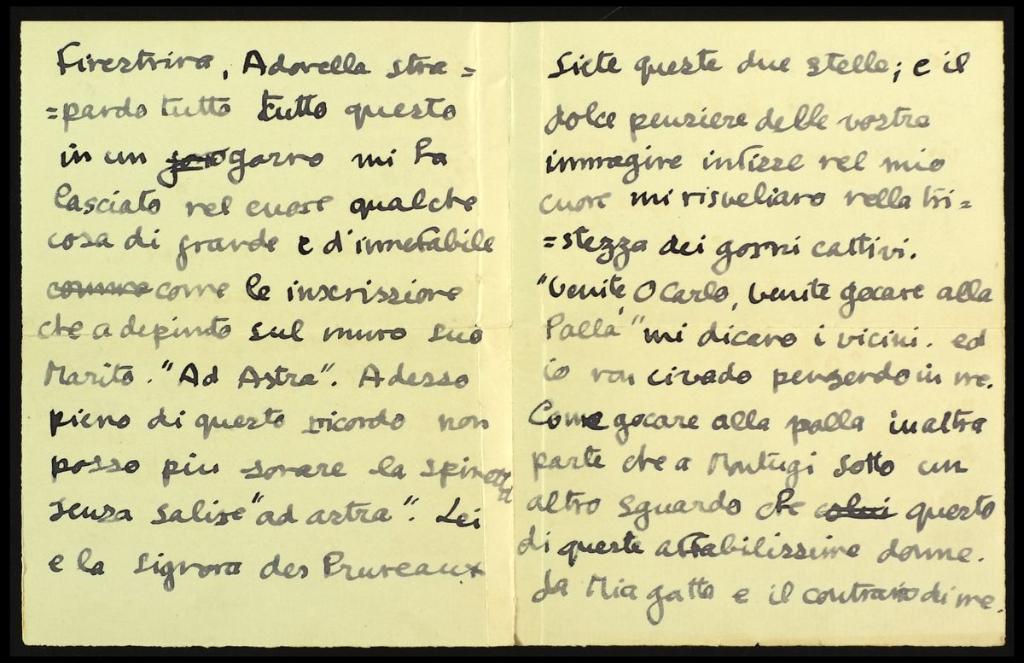 Firestrina, Adorella stra=
=pardo tutto tutto questo
in un gorno mi ha
lasciato nel cuore qualche
cosa di grande e d'innefabile
comme come le inscrissione
che a depinto sul muro suo
Marito. "Ad Astra". Adesso
pieno di questo ricordo non
posso piu sonare la spinetta
senza salire "ad astra". Lei
e la Signora des Pruneaux
siete queste due stelle; e il
dolce pensiere delle vostre
immagine intisse nel mio
cuore mi risveliano nella tri=
=stezza dei gorni cattivi.
"Venite, O Carlo, venite gocare alla
Palla" mi dicano i vicini. ed
io non civado pensendo in me.
Come gocare alla palla in altra
parte che a Montugi sotto un
altro sguardo che colui questo
di queste affabilissime donne.
La Mia gatta e il contrario di me.